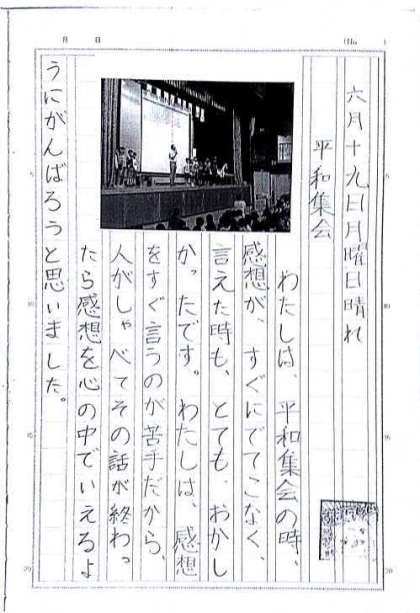 六月十九日月曜日晴れ
平和集会
わたしは、平和集会の時、
感想が、すぐにでてこなく、
言えた時も、とても、おかし
か、たです。わたしは、感想
をすぐ言うのが苦手だから、
人がしゃべてその話が終わっ
たら感想を心の中でいえるよ
うにがんばろうと思いました。
月
日
(No
)